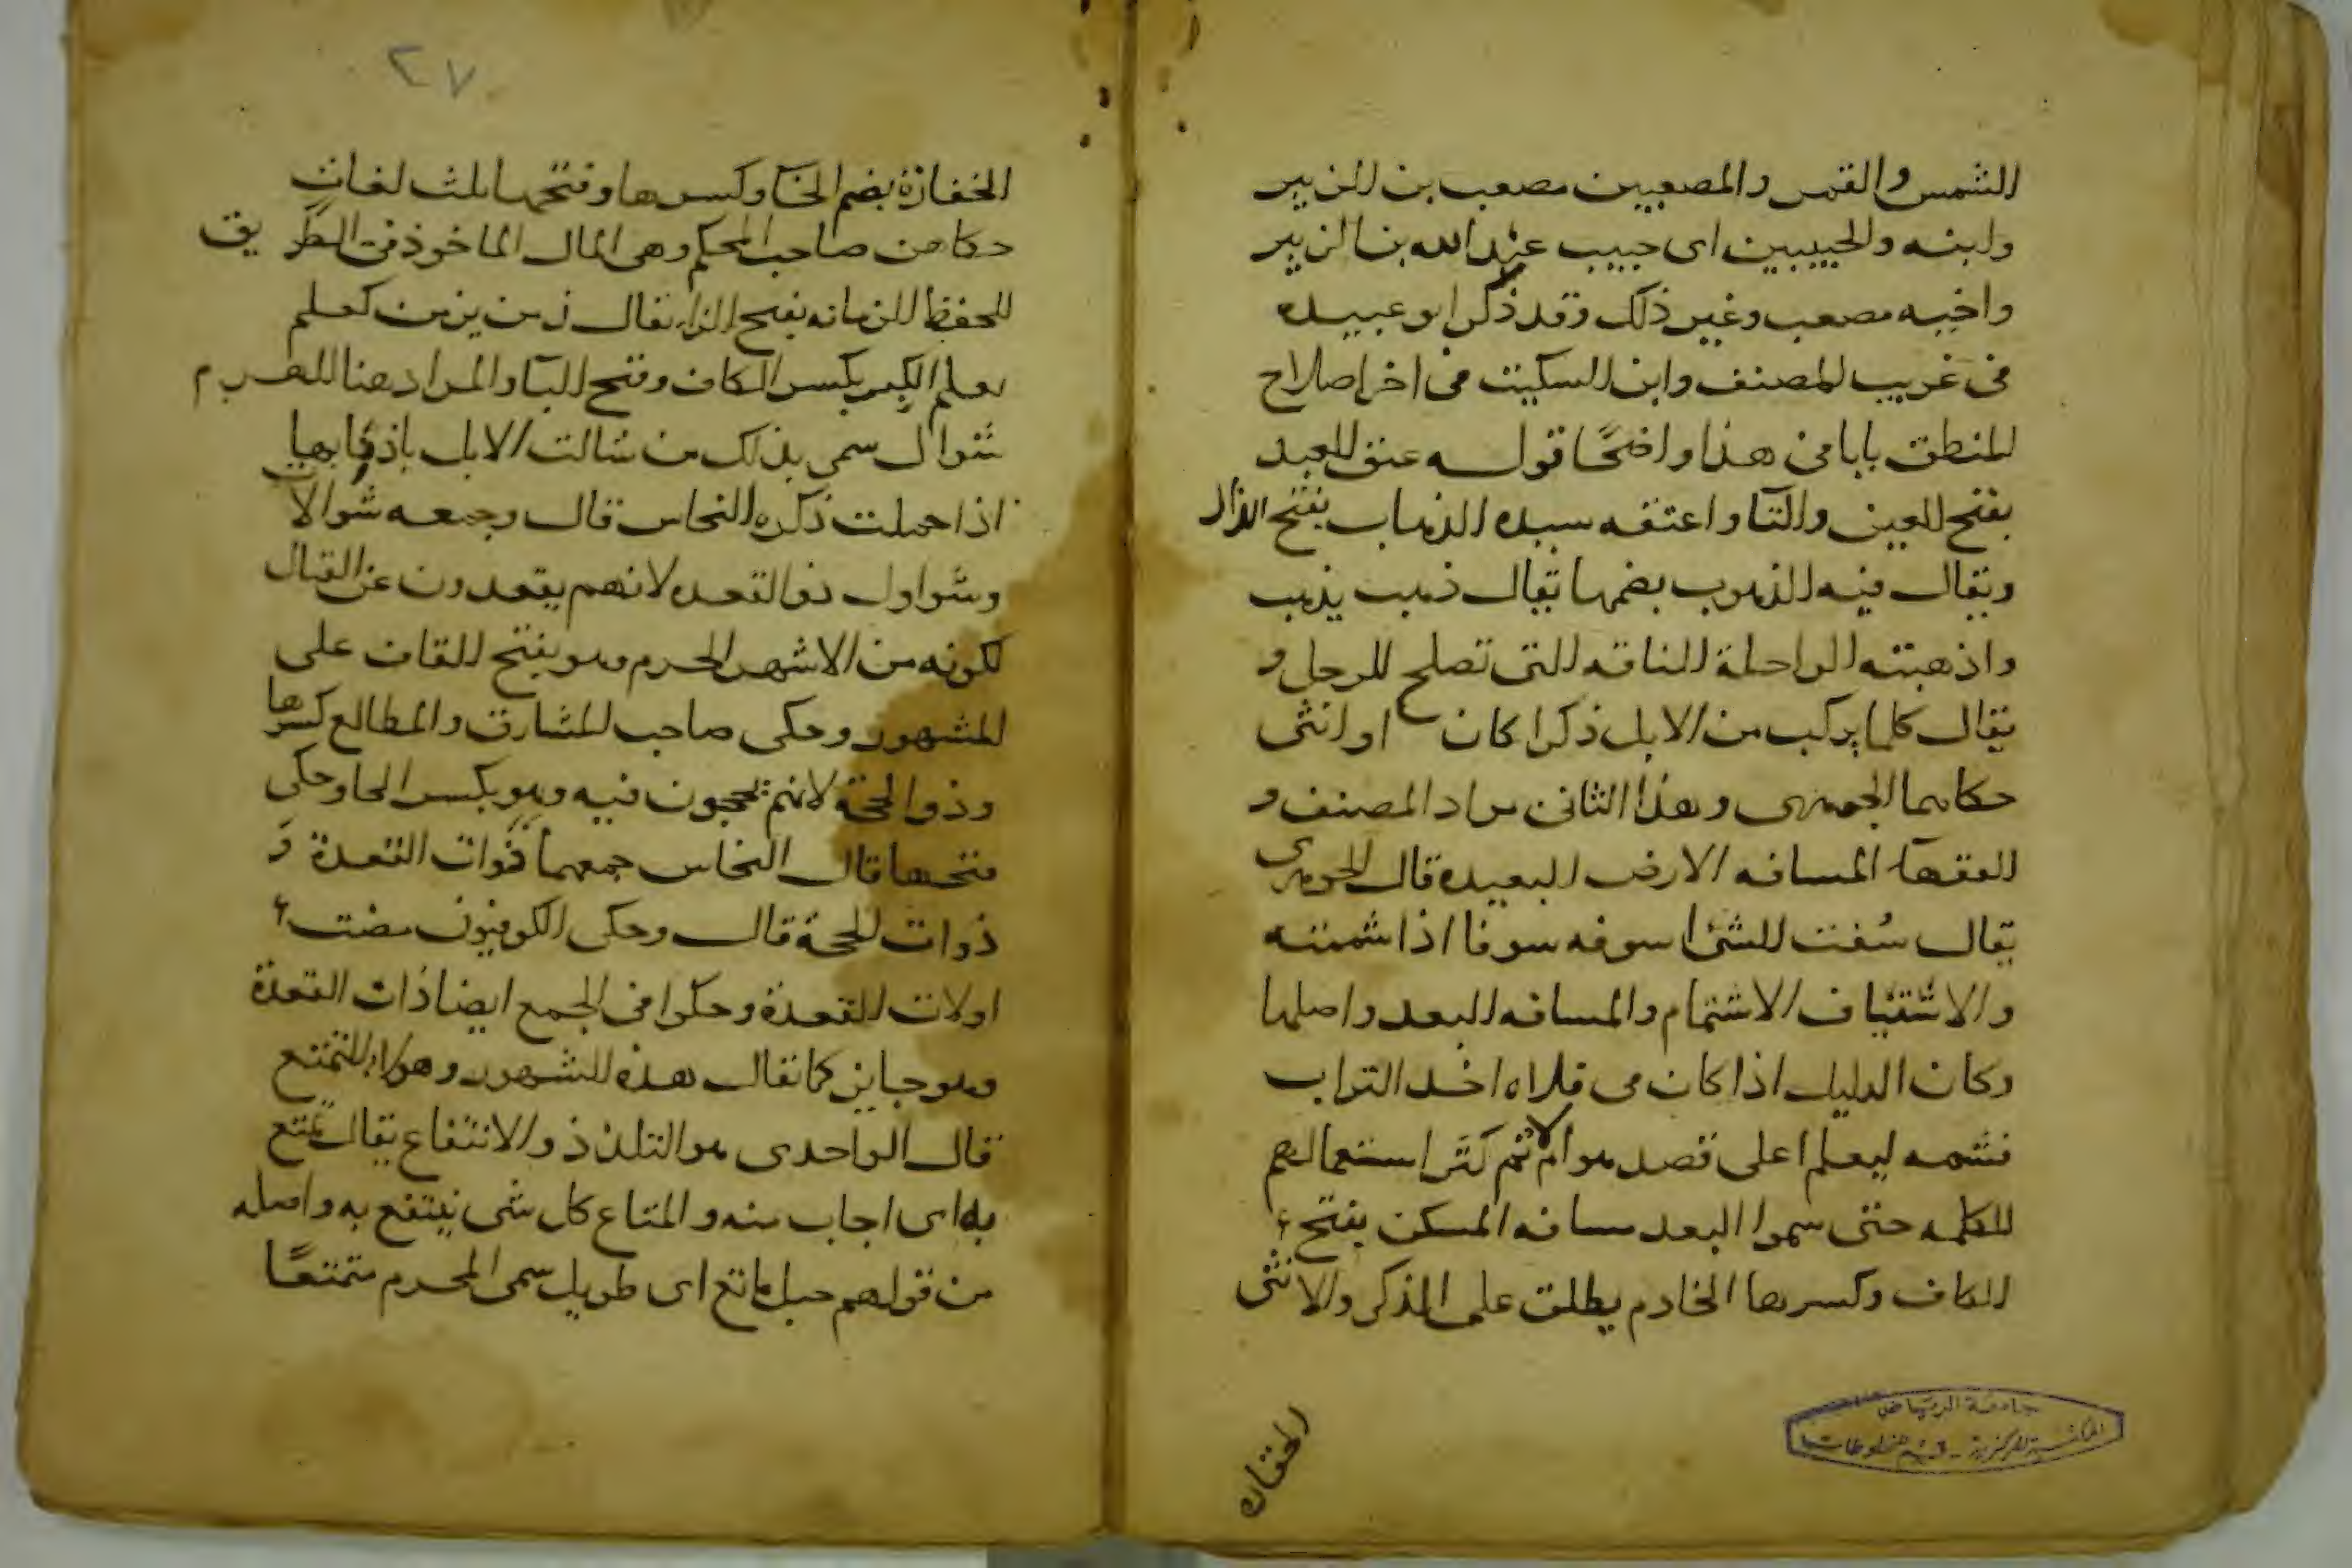 الشمس والقمر والمصعبين مصعب بن الزبير
وابنه والحبيبين اى حبيب عبد الله بن الزبير
واخيه مصعب وغير ذلك وقد ذكر ابو عبيده
فى غريب المصنف وابن السكيت فى اخر اصلاح
المنطق بابا فى هذا واضحًا قوله عتق العبد
بفتح العين والتآ واعتقه سيده الذهاب بفتح الذال
ويقال فيه الذهوب بضمها يقال ذهب يذهب
واذهبته الراحلة الناقه التى تصلح للرحل و
يقال كلما يركب من الابل ذكرا كان او انثى
حكاهما الجوهرى وهذا الثانى مراد المصنف و
الفقهآ المسافه الارض البعيده قال الجوهرى
يقال سُفت الشئ اسوفه سوفا اذا شممته
والاشتياف الاشتمام والمسافه البعد واصلها
وكان الدليل اذا كان فى فلاه اخد التراب
فشمه ليعلم اعلى قصد هو ام لا ثم كثر استعمالهم
الكلمه حتى سموا البعد مسافه المسكن بفتح
الكاف وكسرها الخادم يطلق على المذكر والانثى
الخفاره
جامعة الرياض
المكتبة المركزية - قسم المخطوطات
٢٧
الخفارة بضم الخآ وكسرها وفتحها ثلث لغات
حكاهن صاحب المحكم وهى المال الماخوذ فى الطريق
للحفظ الزمانه بفتح الزاء يقال زمن يزمن كعلم
يعلم الكبر بكسر الكاف وفتح البآ والمراد هنا الهرم
شوال سمى بذلك من شالت الابل باذنابها
اذا حملت ذكره النحاس قال وجمعه شوالات
وشواول ذو القعده لانهم يقعدون عن القتال
لكونه من الاشهر الحرم وهو بفتح القاف على
المشهور وحكى صاحب المشارق والمطالع كسرها
وذو الحجة لانهم يحجون فيه وهو بكسر الحا وحكى
فتحها قال النحاس جمعهما ذوات القعدة و
ذوات الحجة قال وحكى الكوفيون مضت
اولات القعدة وحكوا فى الجمع ايضا ذات القعدة
وهو جايز كما يقال هذه الشهور وهولاء التمتع
قال الواحدى هو التلذذ والانتفاع يقال تمتع
به اى اجاب منه والمتاع كل شى ينتفع به واصله
من قولهم حبل ماتع اى طويل سمى المحرم متمتعًا